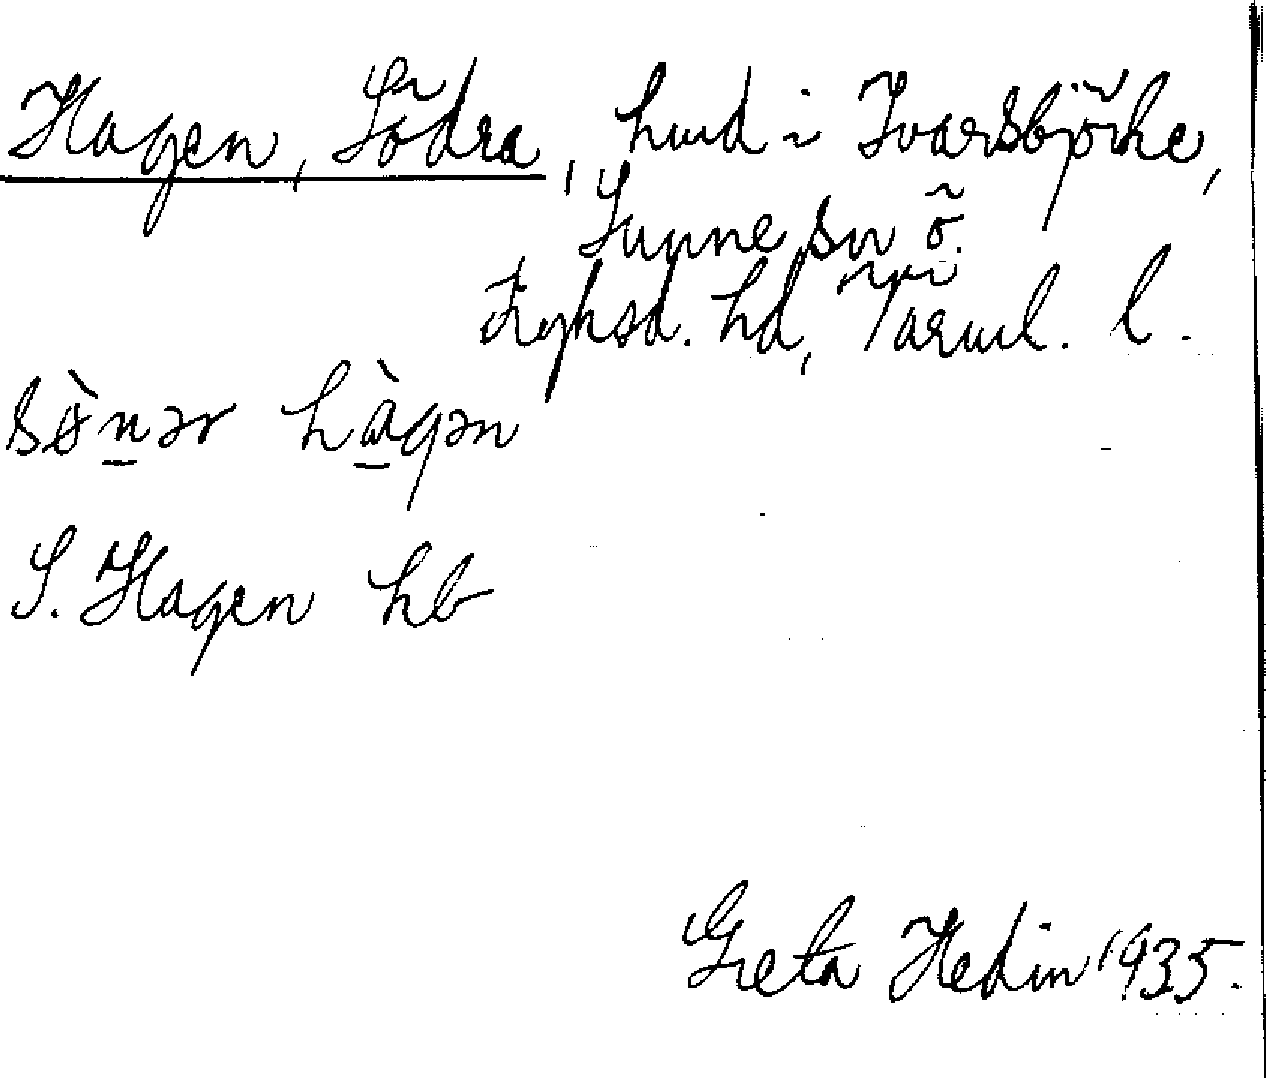 Hagen, Södra, hmd i Ivarsbjörke,
Sunne sn ö.
Fryksd. hd, Värml. l.
sø̀nər hàgən
S. Hagen hb
Greta Hedin 1935.